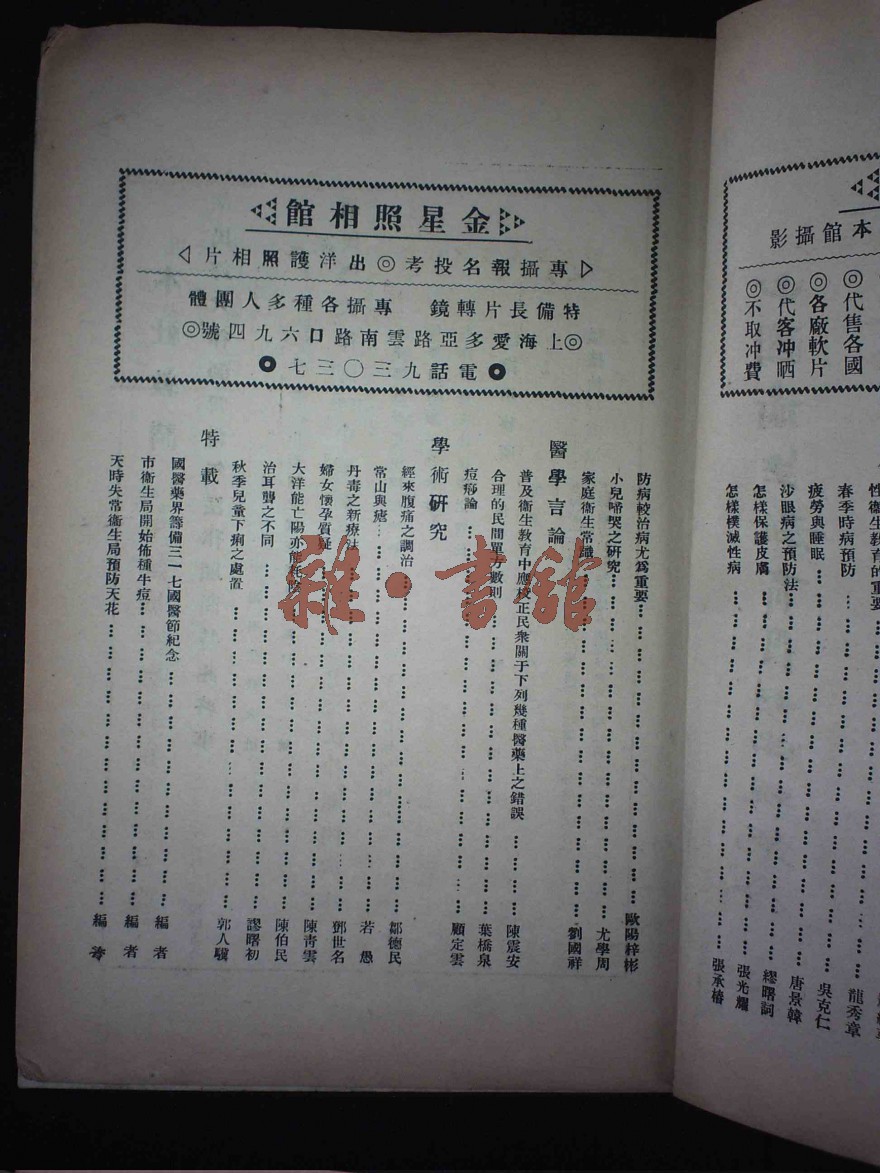 金星照相館
專攝報名投考◎出洋護照相片
特備長片轉鏡 專攝各種多人團體
◎上海愛多亞路雲南路口六九四號◎
電話九三〇三七
防病較治病尤爲重要 歐陽梓彬
小兒啼哭之研究 尤學周
家庭衞生常識 劉國祥
醫學言論
普及衞生教育中應校正民衆關于下列幾種醫藥上之錯誤 陳震安
合理的民間單方數則 葉橋泉
痘痧論 顧定雲
學術研究
經來腹痛之調治 鄒德民
常山與瘧 若愚
丹毒之新療法 鄧世名
婦女懷孕質疑 陳靑雲
大洋能亡陽亦能 陳伯民
治耳聾之不同 謬曙初
秋季兒童下痢之處置 郭人驥
特載
國醫藥界籌備三一七國醫節紀念 編者
市衞生局開始佈種牛痘 編者
天時失常衞生局預防天花 編者
本館攝影
◎代售各國
◎各廠軟片
◎代客冲晒
◎不取冲費
性衞生教育的重要
春季時病預防 龍秀章
疲勞與睡眠 吳克仁
沙眼病之預防法 唐景韓
怎樣保護皮膚 繆曙詞
怎樣樸滅性病 張光耀
張承椿
雜·書館